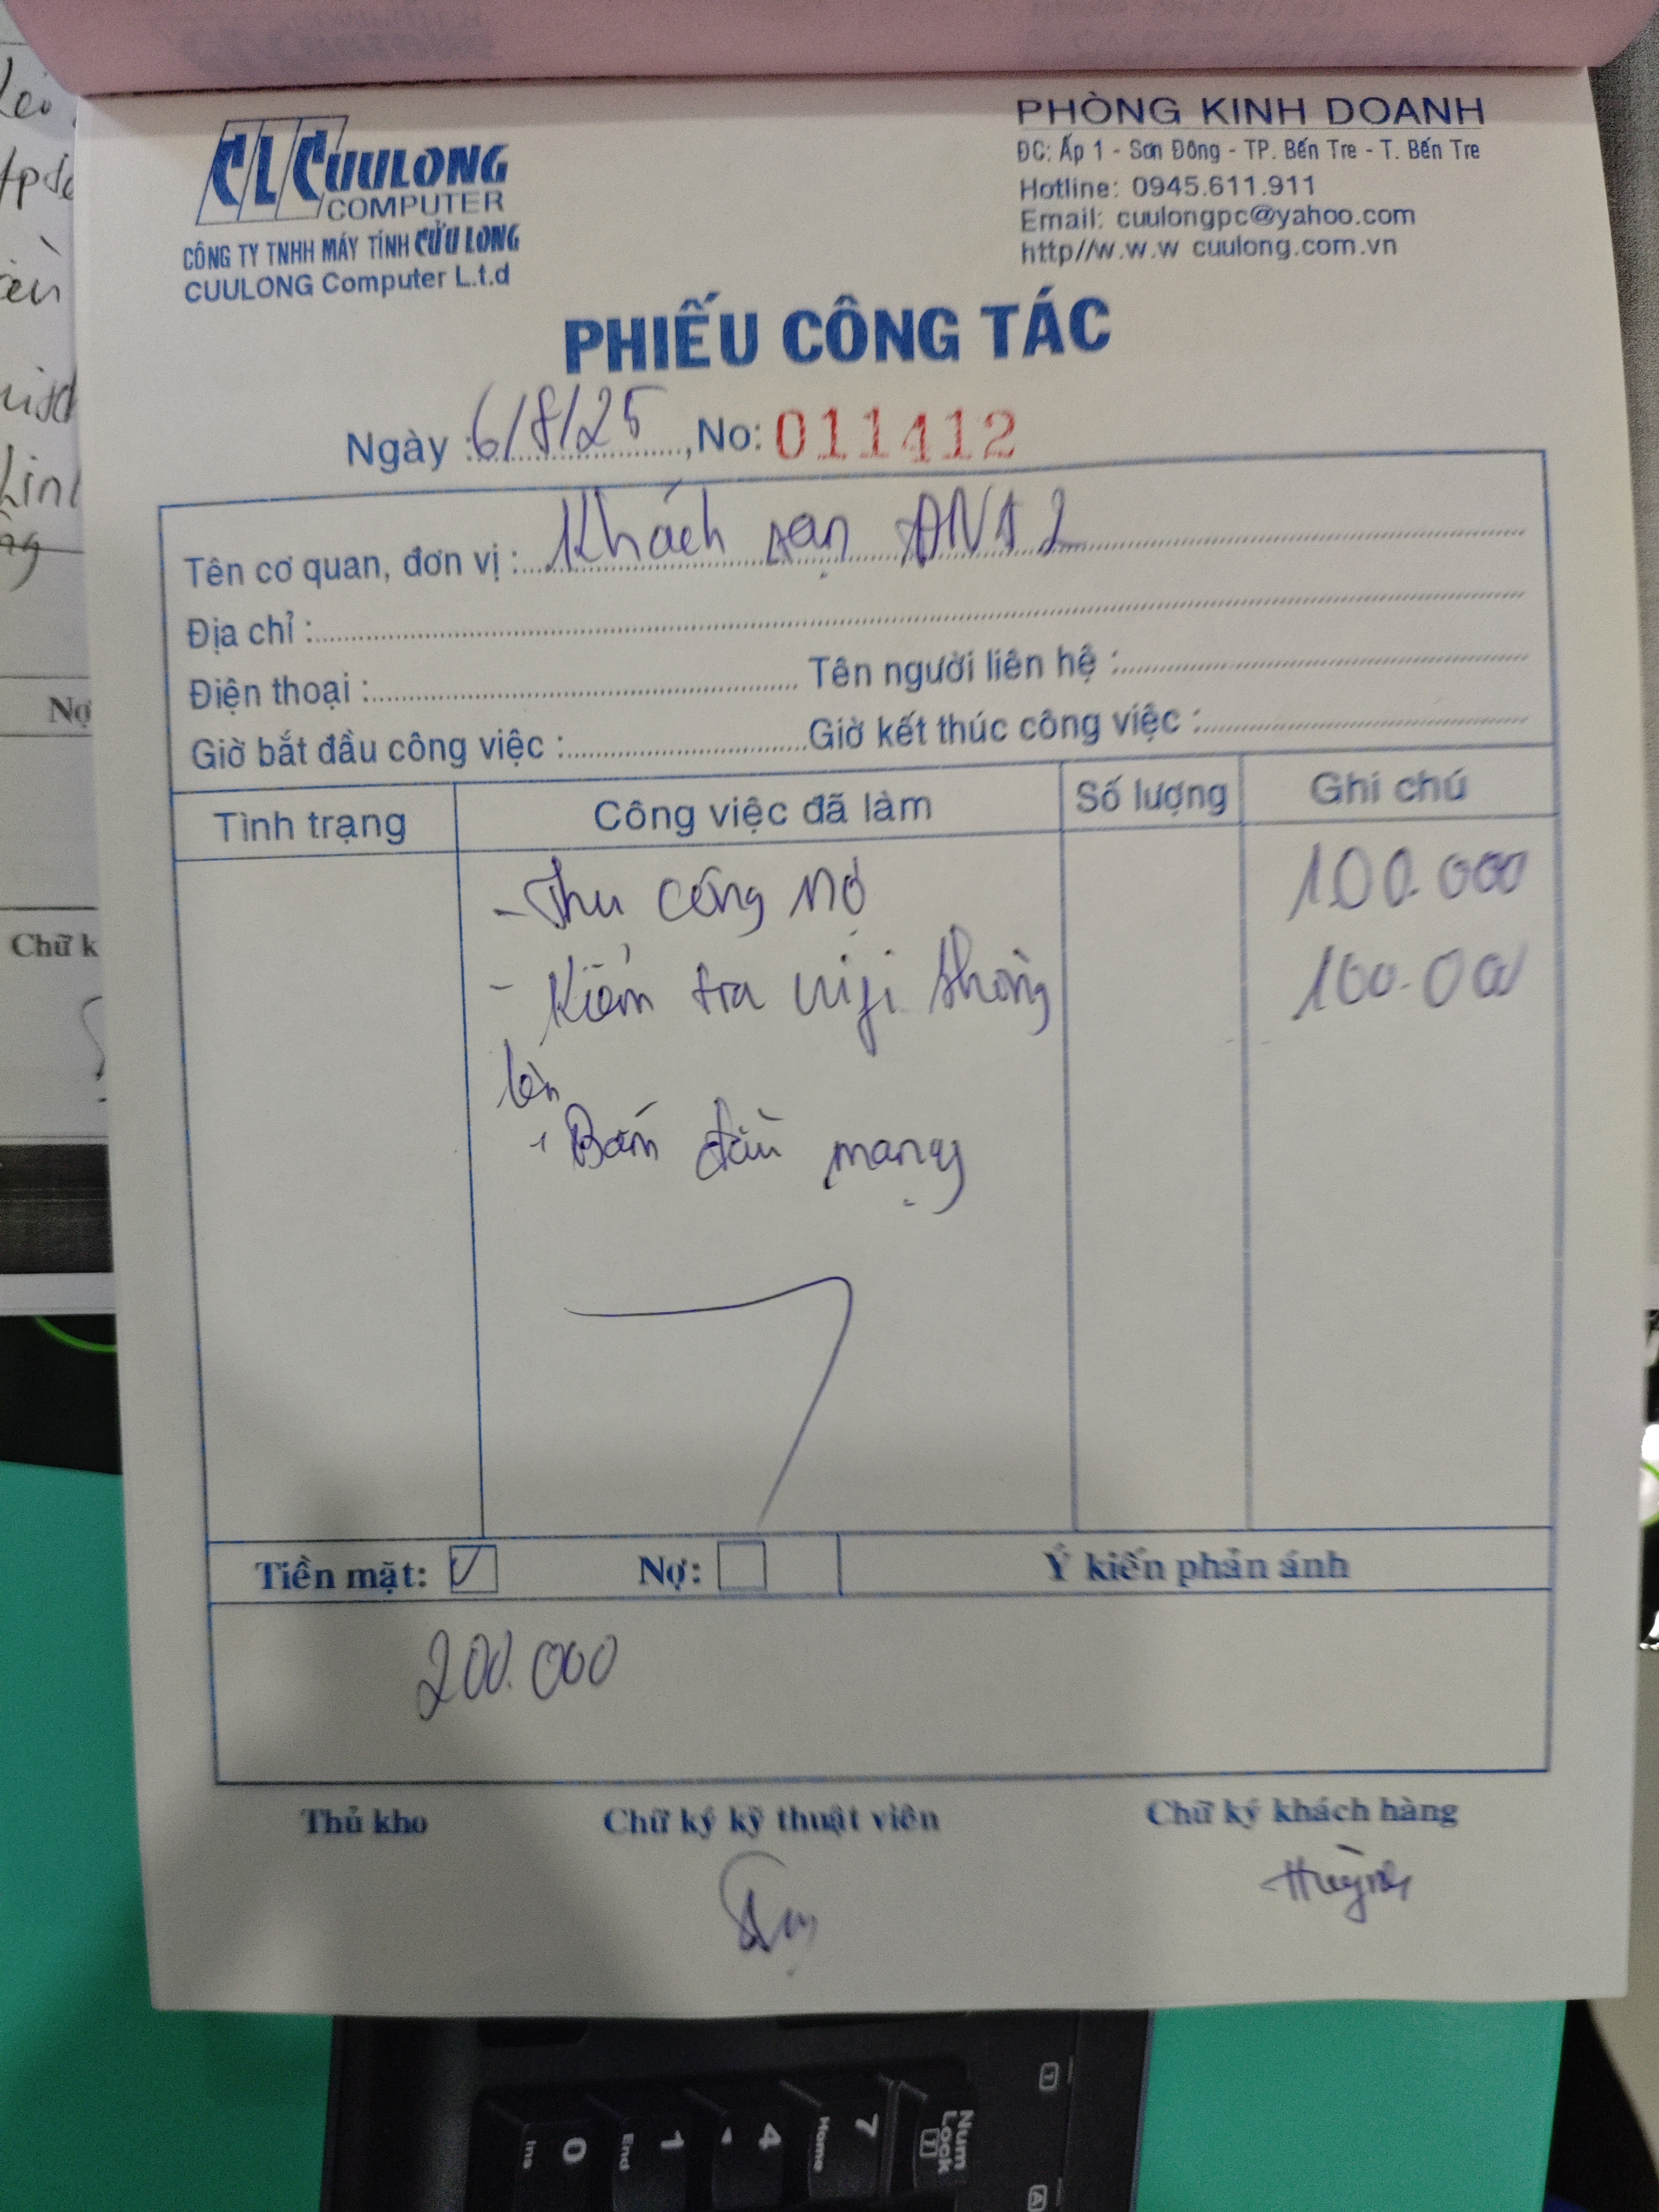 CLC CUULONG
COMPUTER
CÔNG TY TNHH MÁY TÍNH CỬU LONG
CUULONG Computer L.t.d
PHÒNG KINH DOANH
ĐC: Ấp 1 - Sơn Đông - TP. Bến Tre - T. Bến Tre
Hotline: 0945.611.911
Email: cuulongpc@yahoo.com
http//w.w.w cuulong.com.vn
PHIẾU CÔNG TÁC
Ngày : 6/8/25, No: 011412
Tên cơ quan, đơn vị : Khách sạn 2
Địa chỉ :
Điện thoại : Tên người liên hệ :
Giờ bắt đầu công việc : Giờ kết thúc công việc :
Tình trạng Công việc đã làm Số lượng Ghi chú
- Thu công nợ 100.000
- Kiểm tra wifi 100.000
- Bấm đầu mạng
Tiền mặt: ✓ Nợ: Ý kiến phản ánh
200.000
Thủ kho Chữ ký kỹ thuật viên Chữ ký khách hàng
Huỳnh
Nợ
Chữ k
Num
Lock
7
Home
4
1
End
0
Ins